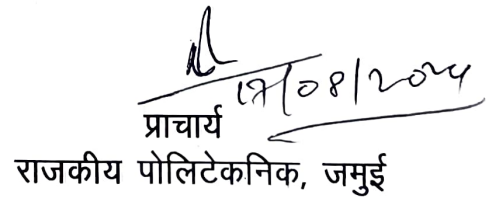 17/08/2024
प्राचार्य
राजकीय पोलिटेकनिक, जमुई